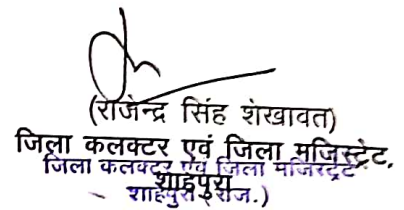 (राजेन्द्र सिंह शेखावत)
जिला कलक्टर एवं जिला मजिस्ट्रेट,
जिला कलक्टर एवं जिला मजिस्ट्रेट
शाहपुरा
शाहपुरा (राज.)